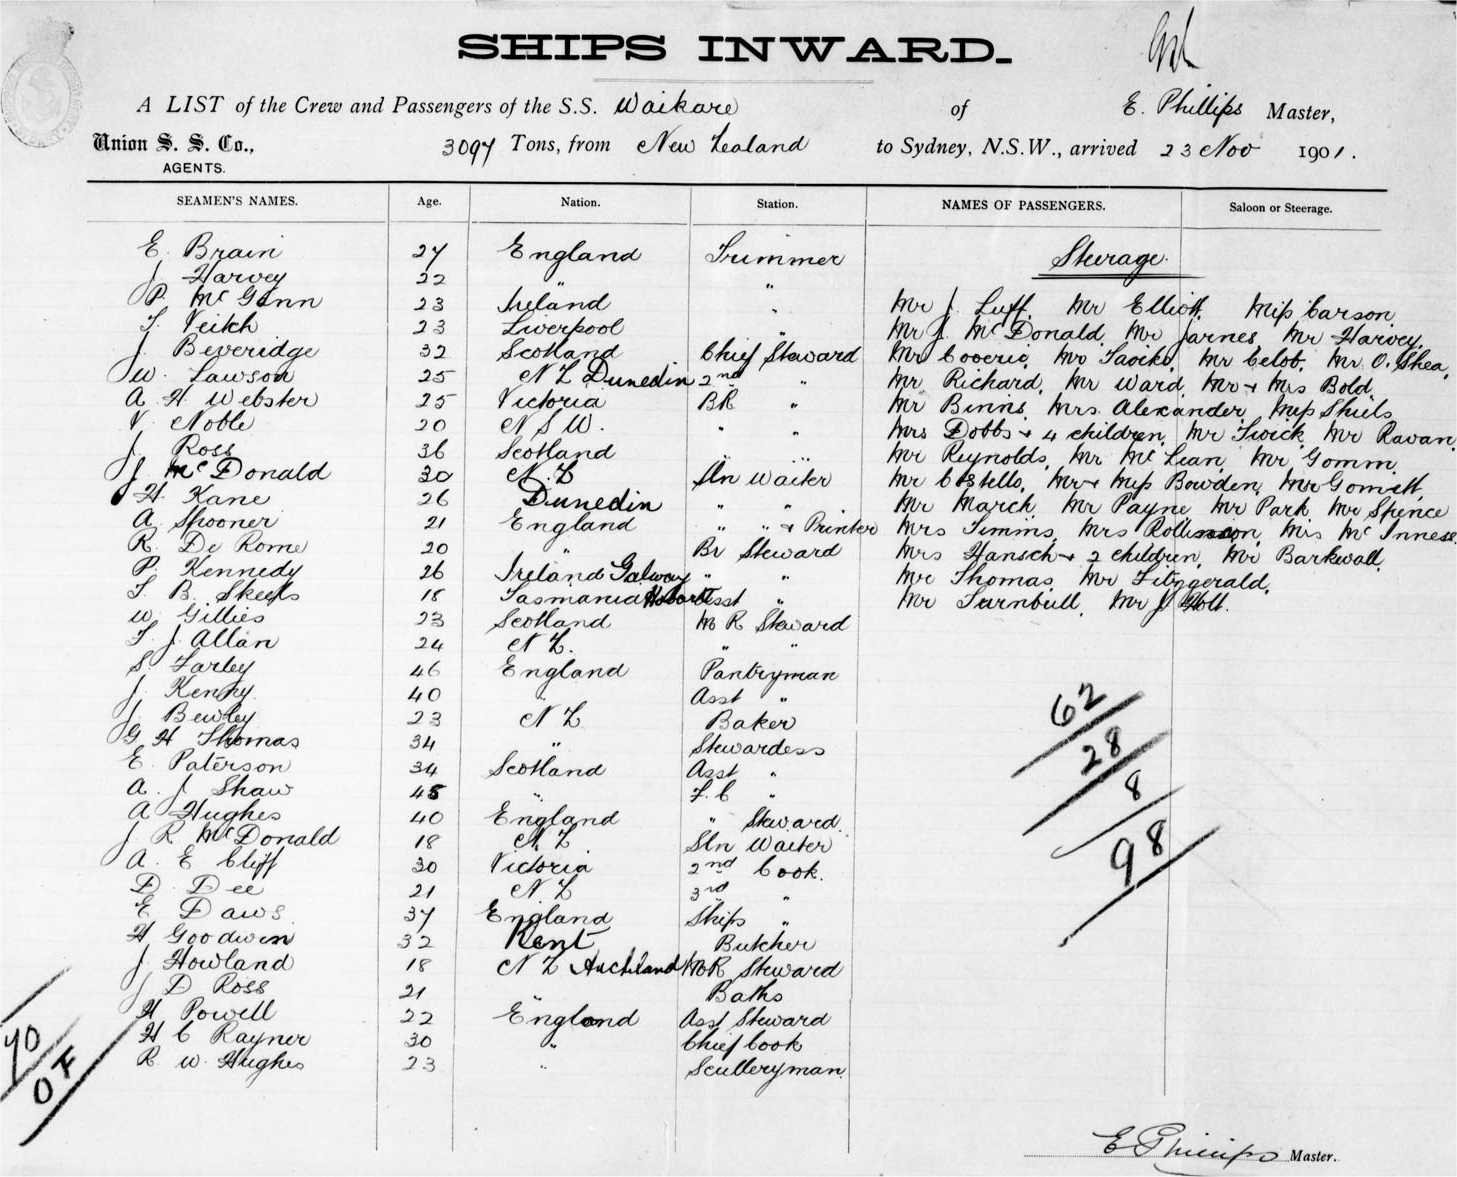 SHIPS INWARD.
A LIST of the Crew and Passengers of the S.S. Waikare of E. Phillips Master,
Union S. S. Co., 3097 Tons, from New Zealand to Sydney, N.S.W., arrived 23 Nov 1901.
AGENTS.
SEAMEN'S NAMES. Age. Nation. Station. NAMES OF PASSENGERS. Saloon or Steerage.
E. Brain 27 England Trimmer
Steerage.
J. Harvey 22 " "
P. McGann 23 Ireland " Mr J. Luff. Mr Elliott. Miss Carson
T. Veitch 23 Liverpool " Mr J. McDonald. Mr Jarnes. Mr Harvey.
J. Beveridge 32 Scotland Chief Steward Mr Mr Mr Mr O. Shea.
W. Lawson 25 N Z Dunedin 2nd " Mr Richard. Mr Ward. Mr + Mrs Bold.
A. H Webster 25 Victoria BR " Mr Binns. Mrs. Alexander. Miss Shiels
V. Noble 20 N S W. " " Mrs Dobbs + 4 children. Mr Twick. Mr Ravan.
J. Ross 36 Scotland " " Mr Reynolds. Mr McLean. Mr Gomm.
J. McDonald 30 N. Z Sln Waiter Mr Costello. Mr + Miss Bowden.
H. Kane 26 Dunedin " " Mr March. Mr Payne Mr Park Mr Spence
A Spooner 21 England " " + Printer Mrs Timms. Mrs Rollinson. Mrs McInness.
R. De Rome 20 " Br Steward Mrs Hansch + 2 children. Mr Barkwall.
P. Kennedy 26 Ireland Galway " " Mr Thomas. Mr Fitzgerald.
T. B. Skeels 18 Tasmania Hobart Asst " Mr Turnbull. Mr J Holt.
W. Gillies 23 Scotland M R Steward
T. J. Allan 24 N Z. " "
S. Farley 46 England Pantryman
J. Kenny. 40 " Asst "
J. Bewley 23 N Z Baker
G. H Thomas 34 " Stewardess
E. Paterson 34 Scotland Asst "
A. J. Shaw 45 " F. C "
A Hughes 40 England " Steward.
J R McDonald 18 N. Z Sln Waiter
A. E Cliff 30 Victoria 2nd Cook.
D. Dee 21 N Z 3rd "
E Daws 37 England Ships "
H Goodwin 32 Kent Butcher
J. Howland 18 N Z Auckland MR Steward
J D Ross 21 " Baths
H Powell 22 England Asst Steward
H C Rayner 30 " Chief Cook
R. W. Hughes 23 " Sculleryman.
62
28
8
98
70
OF
E Phillips Master.